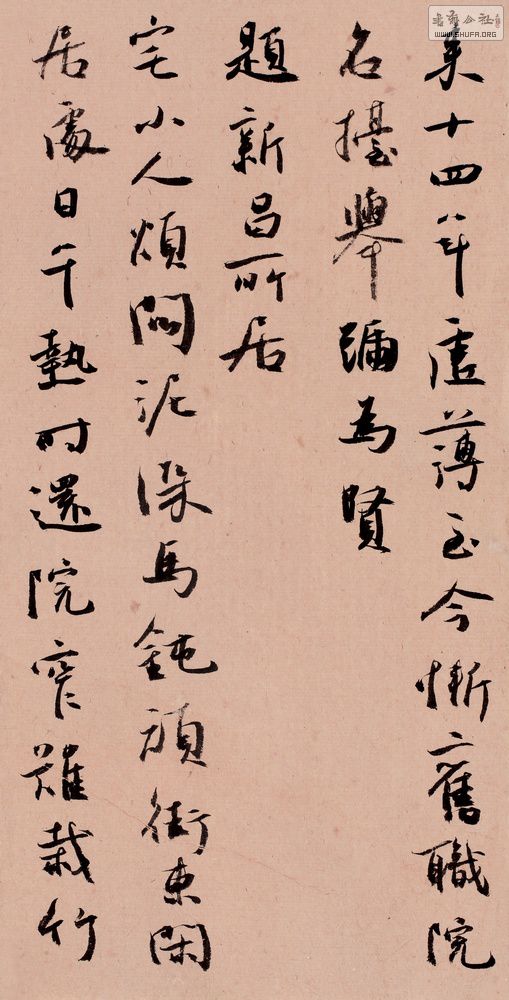 來十四年虛薄至今慚舊職院
名擡舉號為賢
題新昌所居
宅小人煩悶泥深馬鈍頑街東閑
居處日午熱時還院窄難栽竹
WWW.SHUFA.ORG